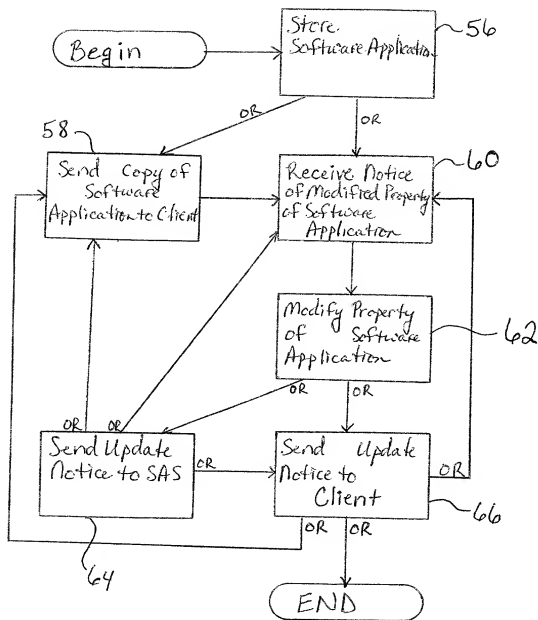 Begin
Store
Software Application
56
OR
OR
58
Send Copy of
Software
Application to Client
60
Receive Notice
of Modified Property
of Software
Application
Modify Property
of Software
Application
62
OR
OR
OR
OR
Send Update
Notice to SAS
OR
64
Send Update
Notice to
Client
OR
66
OR
OR
END